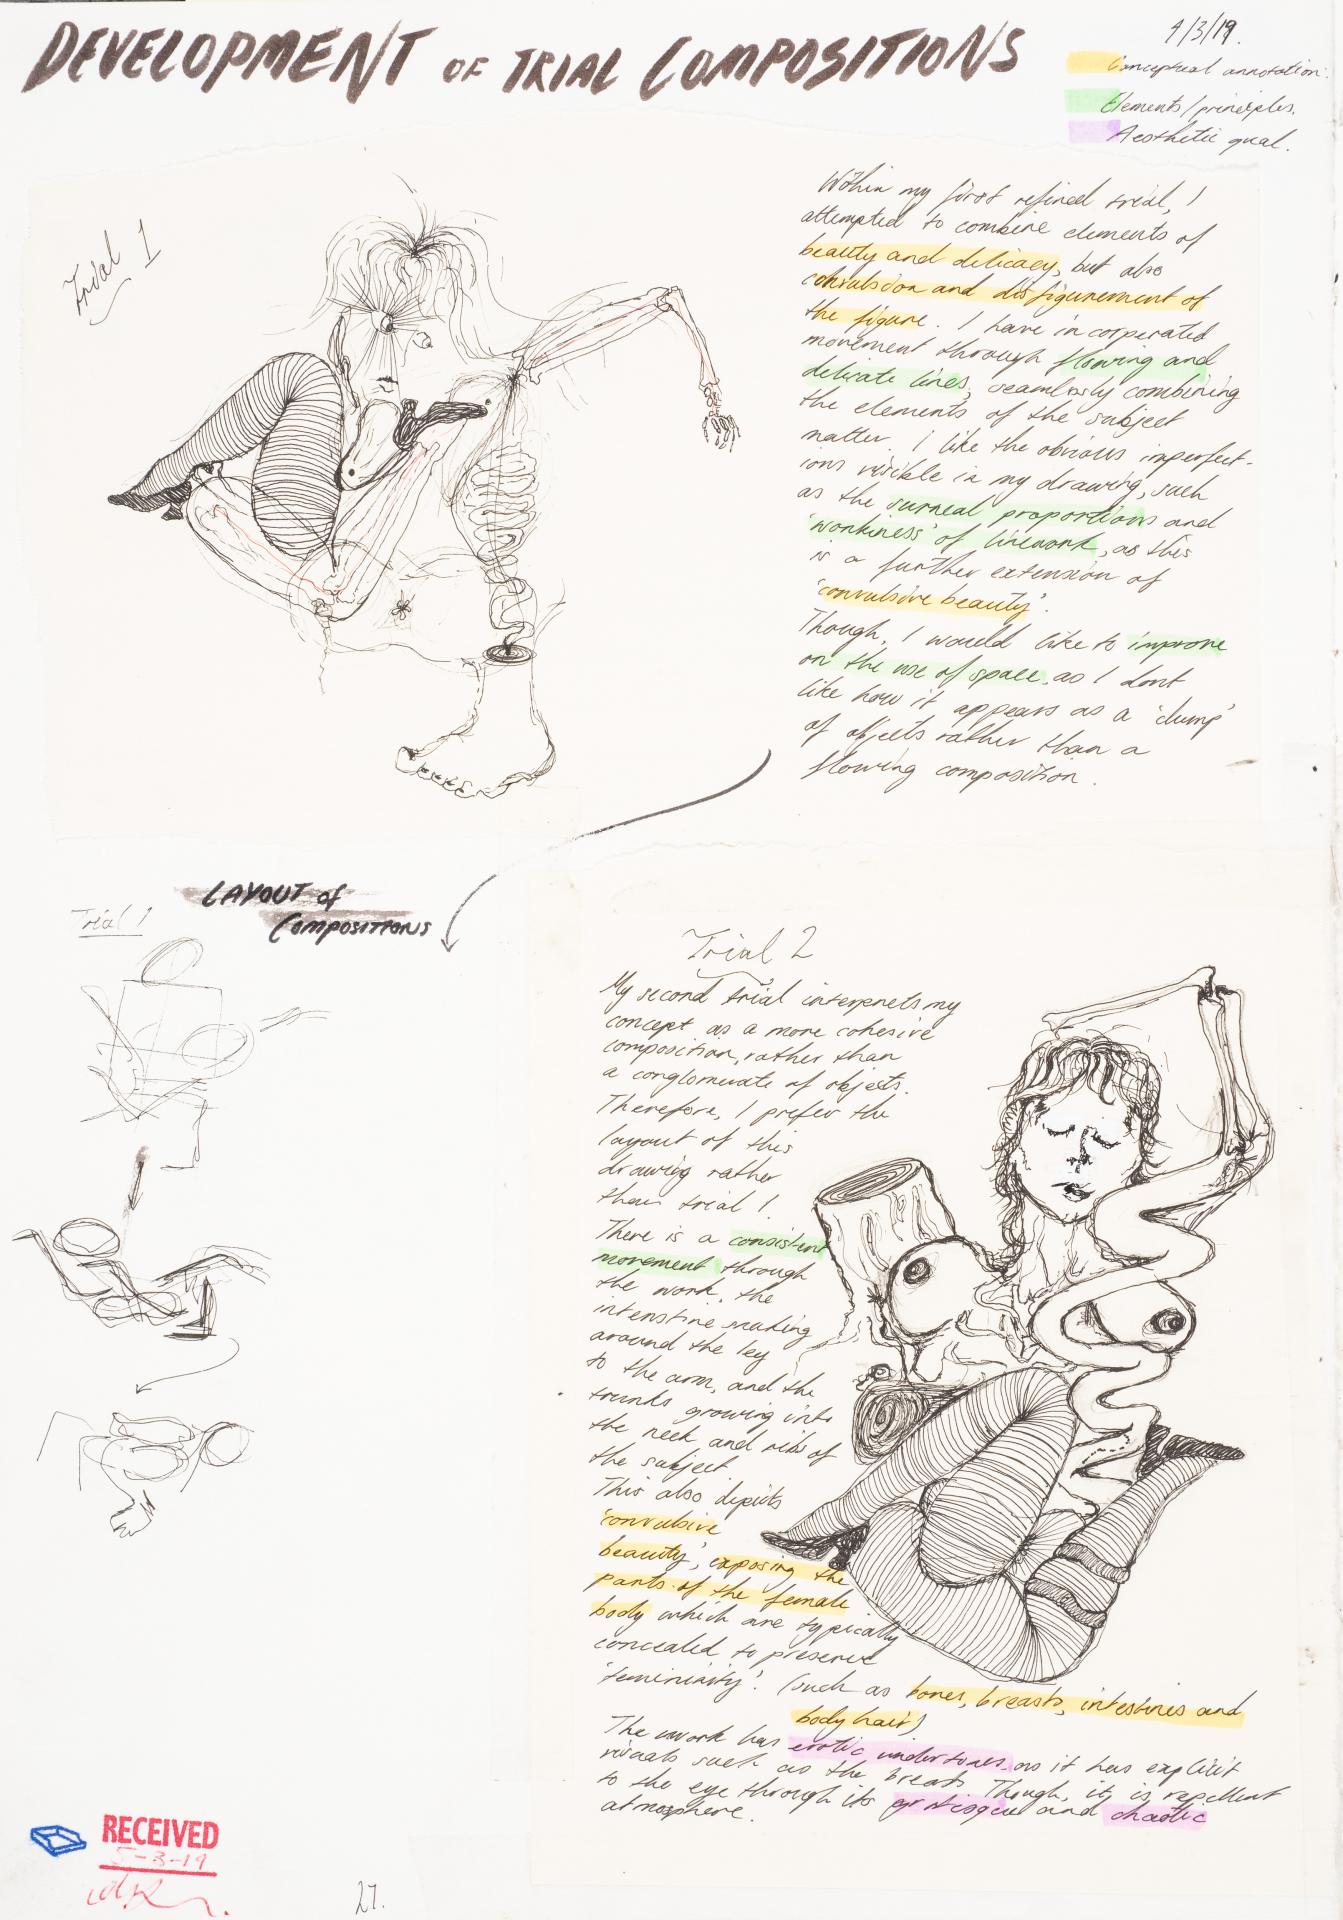 DEVELOPMENT OF TRIAL COMPOSITIONS
4/3/19.
Conceptual annotation.
Elements/principles.
Aesthetic qual.
Trial 1
Within my first refined trial, I
attempted to combine elements of
beauty and delicacy, but also
convulsion and disfigurement of
the figure. I have incorperated
movement through flowing and
delicate lines, seamlessly combining
the elements of the subject
matter. I like the obvious imperfect-
ions visible in my drawing, such
as the surreal proportions and
'wonkiness' of linework, as this
is a further extension of
'convulsive beauty'.
Though, I would like to improve
on the use of space, as I dont
like how it appears as a 'clump'
of objects rather than a
flowing composition.
LAYOUT OF
COMPOSITIONS
Trial 1
Trial 2
My second trial interprets my
concept as a more cohesive
composition, rather than
a conglomerate of objects.
Therefore, I prefer the
layout of this
drawing rather
than trial 1.
There is a consistent
movement through
the work, the
intenstine snaking
around the leg
to the arm, and the
trunks growing into
the neck and ribs of
the subject
This also depicts
'convulsive
beauty', exposing the
parts of the female
body which are typically
concealed to preserve
'feminiity'. (such as bones, breasts, intestines and
body hair)
The work has erotic undertones, as it has explicit
visuals such as the breasts. Though, it is repellent
to the eye through its grotisque and chaotic
atmosphere.
RECEIVED
5-3-19
27.